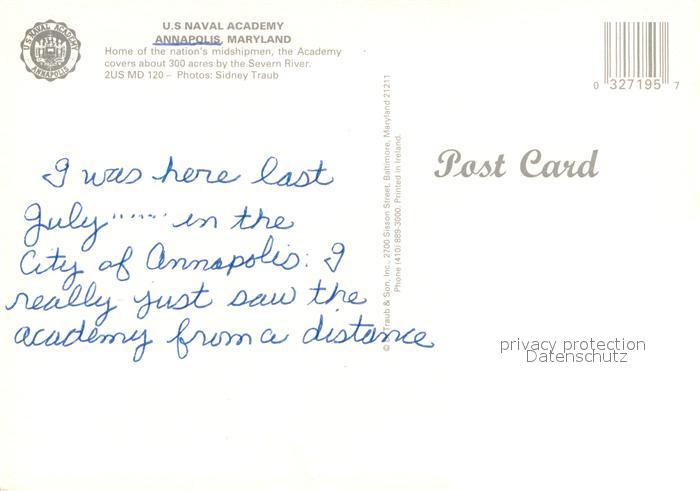 U.S. NAVAL ACADEMY
ANNAPOLIS
U.S NAVAL ACADEMY
ANNAPOLIS, MARYLAND
Home of the nation's midshipmen, the Academy
covers about 300 acres by the Severn River.
2US MD 120 – Photos: Sidney Traub
0 327195 7
Post Card
© D. Traub & Son, Inc., 2700 Sisson Street, Baltimore, Maryland 21211
Phone (410) 889-3000. Printed in Ireland.
I was here last
July ····· in the
City of Annapolis: I
really just saw the
academy from a distance
privacy protection
Datenschutz